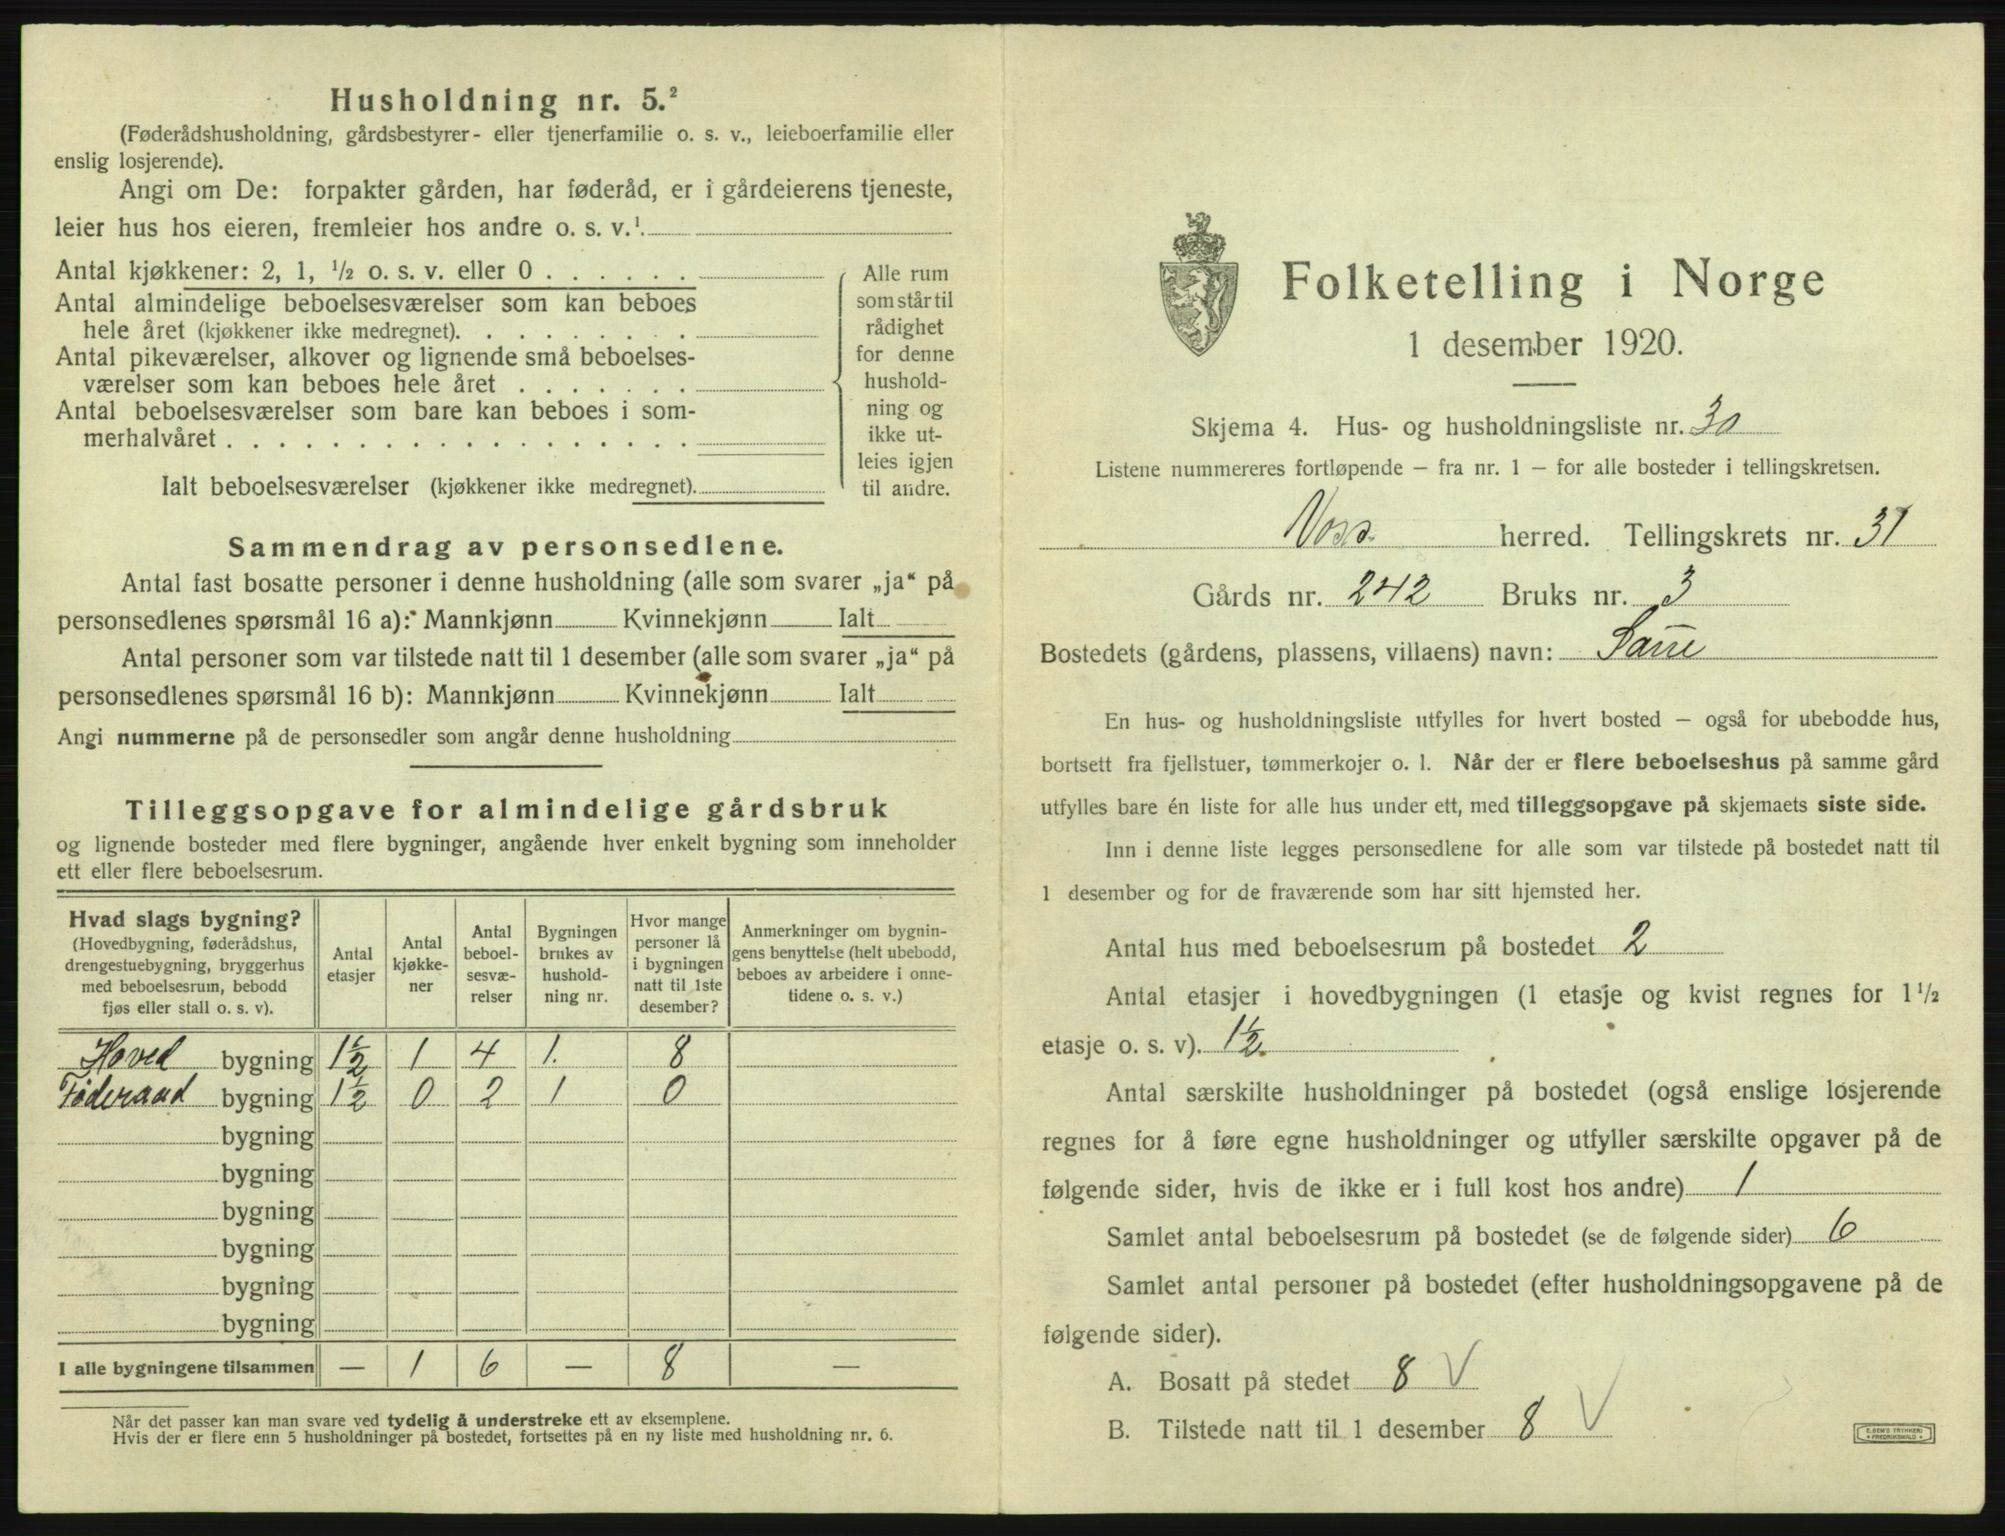 Husholdning nr. 5.²
(Føderådshusholdning, gårdsbestyrer- eller tjenerfamilie o. s. v., leieboerfamilie eller
enslig losjerende).
Angi om De: forpakter gården, har føderåd, er i gårdeierens tjeneste,
leier hus hos eieren, fremleier hos andre o. s. v.¹
Antal kjøkkener: 2, 1, ½ o. s. v. eller 0 . . . . . .
Antal almindelige beboelsesværelser som kan beboes
hele året (kjøkkener ikke medregnet). . . . . . . . .
Antal pikeværelser, alkover og lignende små beboelses-
værelser som kan beboes hele året . . . . . . .
Antal beboelsesværelser som bare kan beboes i som-
merhalvåret . . . . . . . . . . . . . . . . . .
Ialt beboelsesværelser (kjøkkener ikke medregnet).
Alle rum
som står til
rådighet
for denne
hushold-
ning og
ikke ut-
leies igjen
til andre.
Sammendrag av personsedlene.
Antal fast bosatte personer i denne husholdning (alle som svarer „ja“ på
personsedlenes spørsmål 16 a): Mannkjønn Kvinnekjønn Ialt
Antal personer som var tilstede natt til 1 desember (alle som svarer „ja“ på
personsedlenes spørsmål 16 b): Mannkjønn Kvinnekjønn Ialt
Angi nummerne på de personsedler som angår denne husholdning
Tilleggsopgave for almindelige gårdsbruk
og lignende bosteder med flere bygninger, angående hver enkelt bygning som inneholder
ett eller flere beboelsesrum.
Hvad slags bygning?
(Hovedbygning, føderådshus,
drengestuebygning, bryggerhus
med beboelsesrum, bebodd
fjøs eller stall o. s. v).
Antal
etasjer
Antal
kjøkke-
ner
Antal
beboel-
sesvæ-
relser
Bygningen
brukes av
hushold-
ning nr.
Hvor mange
personer lå
i bygningen
natt til 1ste
desember?
Anmerkninger om bygnin-
gens benyttelse (helt ubebodd,
beboes av arbeidere i onne-
tidene o. s. v.)
Hoved bygning 1½ 1 4 1. 8
Føderaad bygning 1½ 0 2 1 0
bygning
bygning
bygning
bygning
bygning
bygning
I alle bygningene tilsammen — 1 6 — 8 —
Når det passer kan man svare ved tydelig å understreke ett av eksemplene.
Hvis der er flere enn 5 husholdninger på bostedet, fortsettes på en ny liste med husholdning nr. 6.
Folketelling i Norge
1 desember 1920.
Skjema 4. Hus- og husholdningsliste nr. 30
Listene nummereres fortløpende – fra nr. 1 – for alle bosteder i tellingskretsen.
Voss herred. Tellingskrets nr. 31
Gårds nr. 242 Bruks nr. 3
Bostedets (gårdens, plassens, villaens) navn:
En hus- og husholdningsliste utfylles for hvert bosted – også for ubebodde hus,
bortsett fra fjellstuer, tømmerkojer o. l. Når der er flere beboelseshus på samme gård
utfylles bare én liste for alle hus under ett, med tilleggsopgave på skjemaets siste side.
Inn i denne liste legges personsedlene for alle som var tilstede på bostedet natt til
1 desember og for de fraværende som har sitt hjemsted her.
Antal hus med beboelsesrum på bostedet 2
Antal etasjer i hovedbygningen (1 etasje og kvist regnes for 1½
etasje o. s. v). 1½.
Antal særskilte husholdninger på bostedet (også enslige losjerende
regnes for å føre egne husholdninger og utfyller særskilte opgaver på de
følgende sider, hvis de ikke er i full kost hos andre) 1
Samlet antal beboelsesrum på bostedet (se de følgende sider) 6
Samlet antal personer på bostedet (efter husholdningsopgavene på de
følgende sider).
A. Bosatt på stedet 8 V
B. Tilstede natt til 1 desember 8 V
E. SEM'S TRYKKERI
FREDRIKSHALD